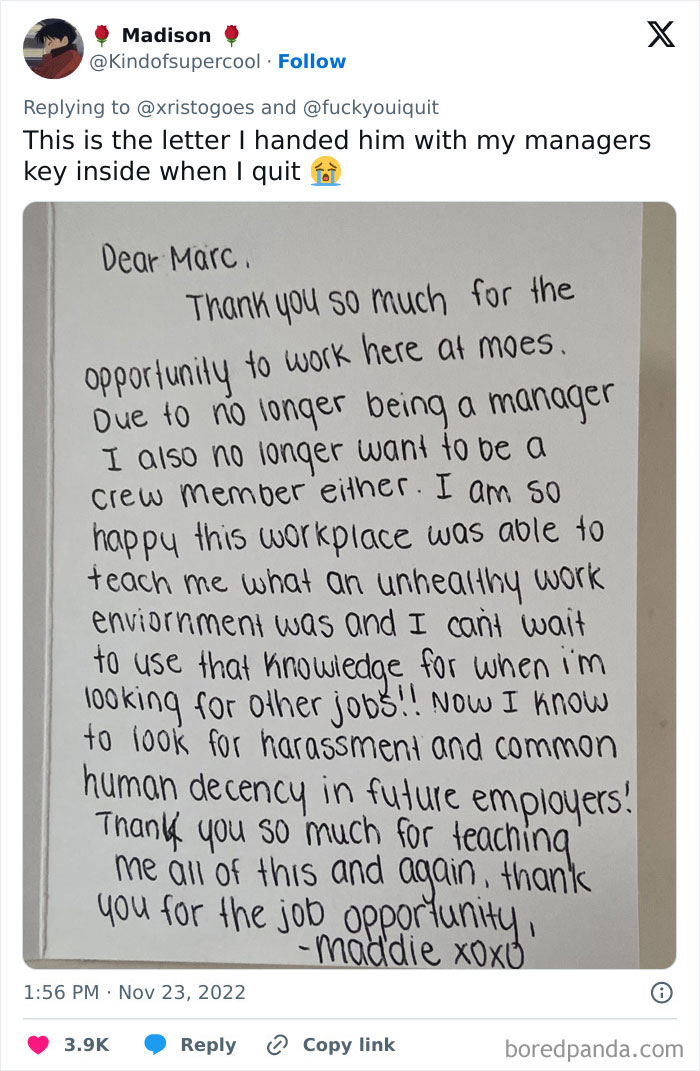 🌹 Madison 🌹
@Kindofsupercool · Follow
Replying to @xristogoes and @fuckyouiquit
This is the letter I handed him with my managers
key inside when I quit 😭
Dear Marc,
Thank you so much for the
opportunity to work here at moes.
Due to no longer being a manager
I also no longer want to be a
crew member either. I am so
happy this workplace was able to
teach me what an unhealthy work
enviornment was and I can't wait
to use that knowledge for when i'm
looking for other jobs!! Now I know
to look for harassment and common
human decency in future employers!
Thank you so much for teaching
me all of this and again, thank
you for the job opportunity,
-maddie xoxo
1:56 PM · Nov 23, 2022
3.9K Reply Copy link
boredpanda.com